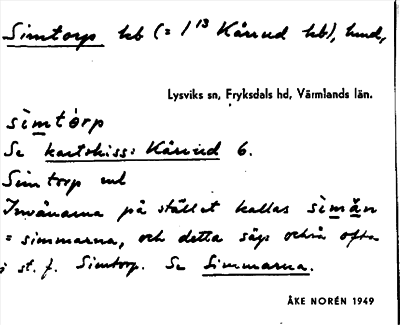 Simtorp hb (= 1/13 Kårud hb), hmd,
Lysviks sn, Fryksdals hd, Värmlands län.
sìmtórp
Se kartskiss: Kårud 6.
Simtorp
Invånarna på stället kallas sìmän
= simmarna, och detta säges också ofta
i st. f. Simtorp. Se Simmarna.
ÅKE NORÉN 1949